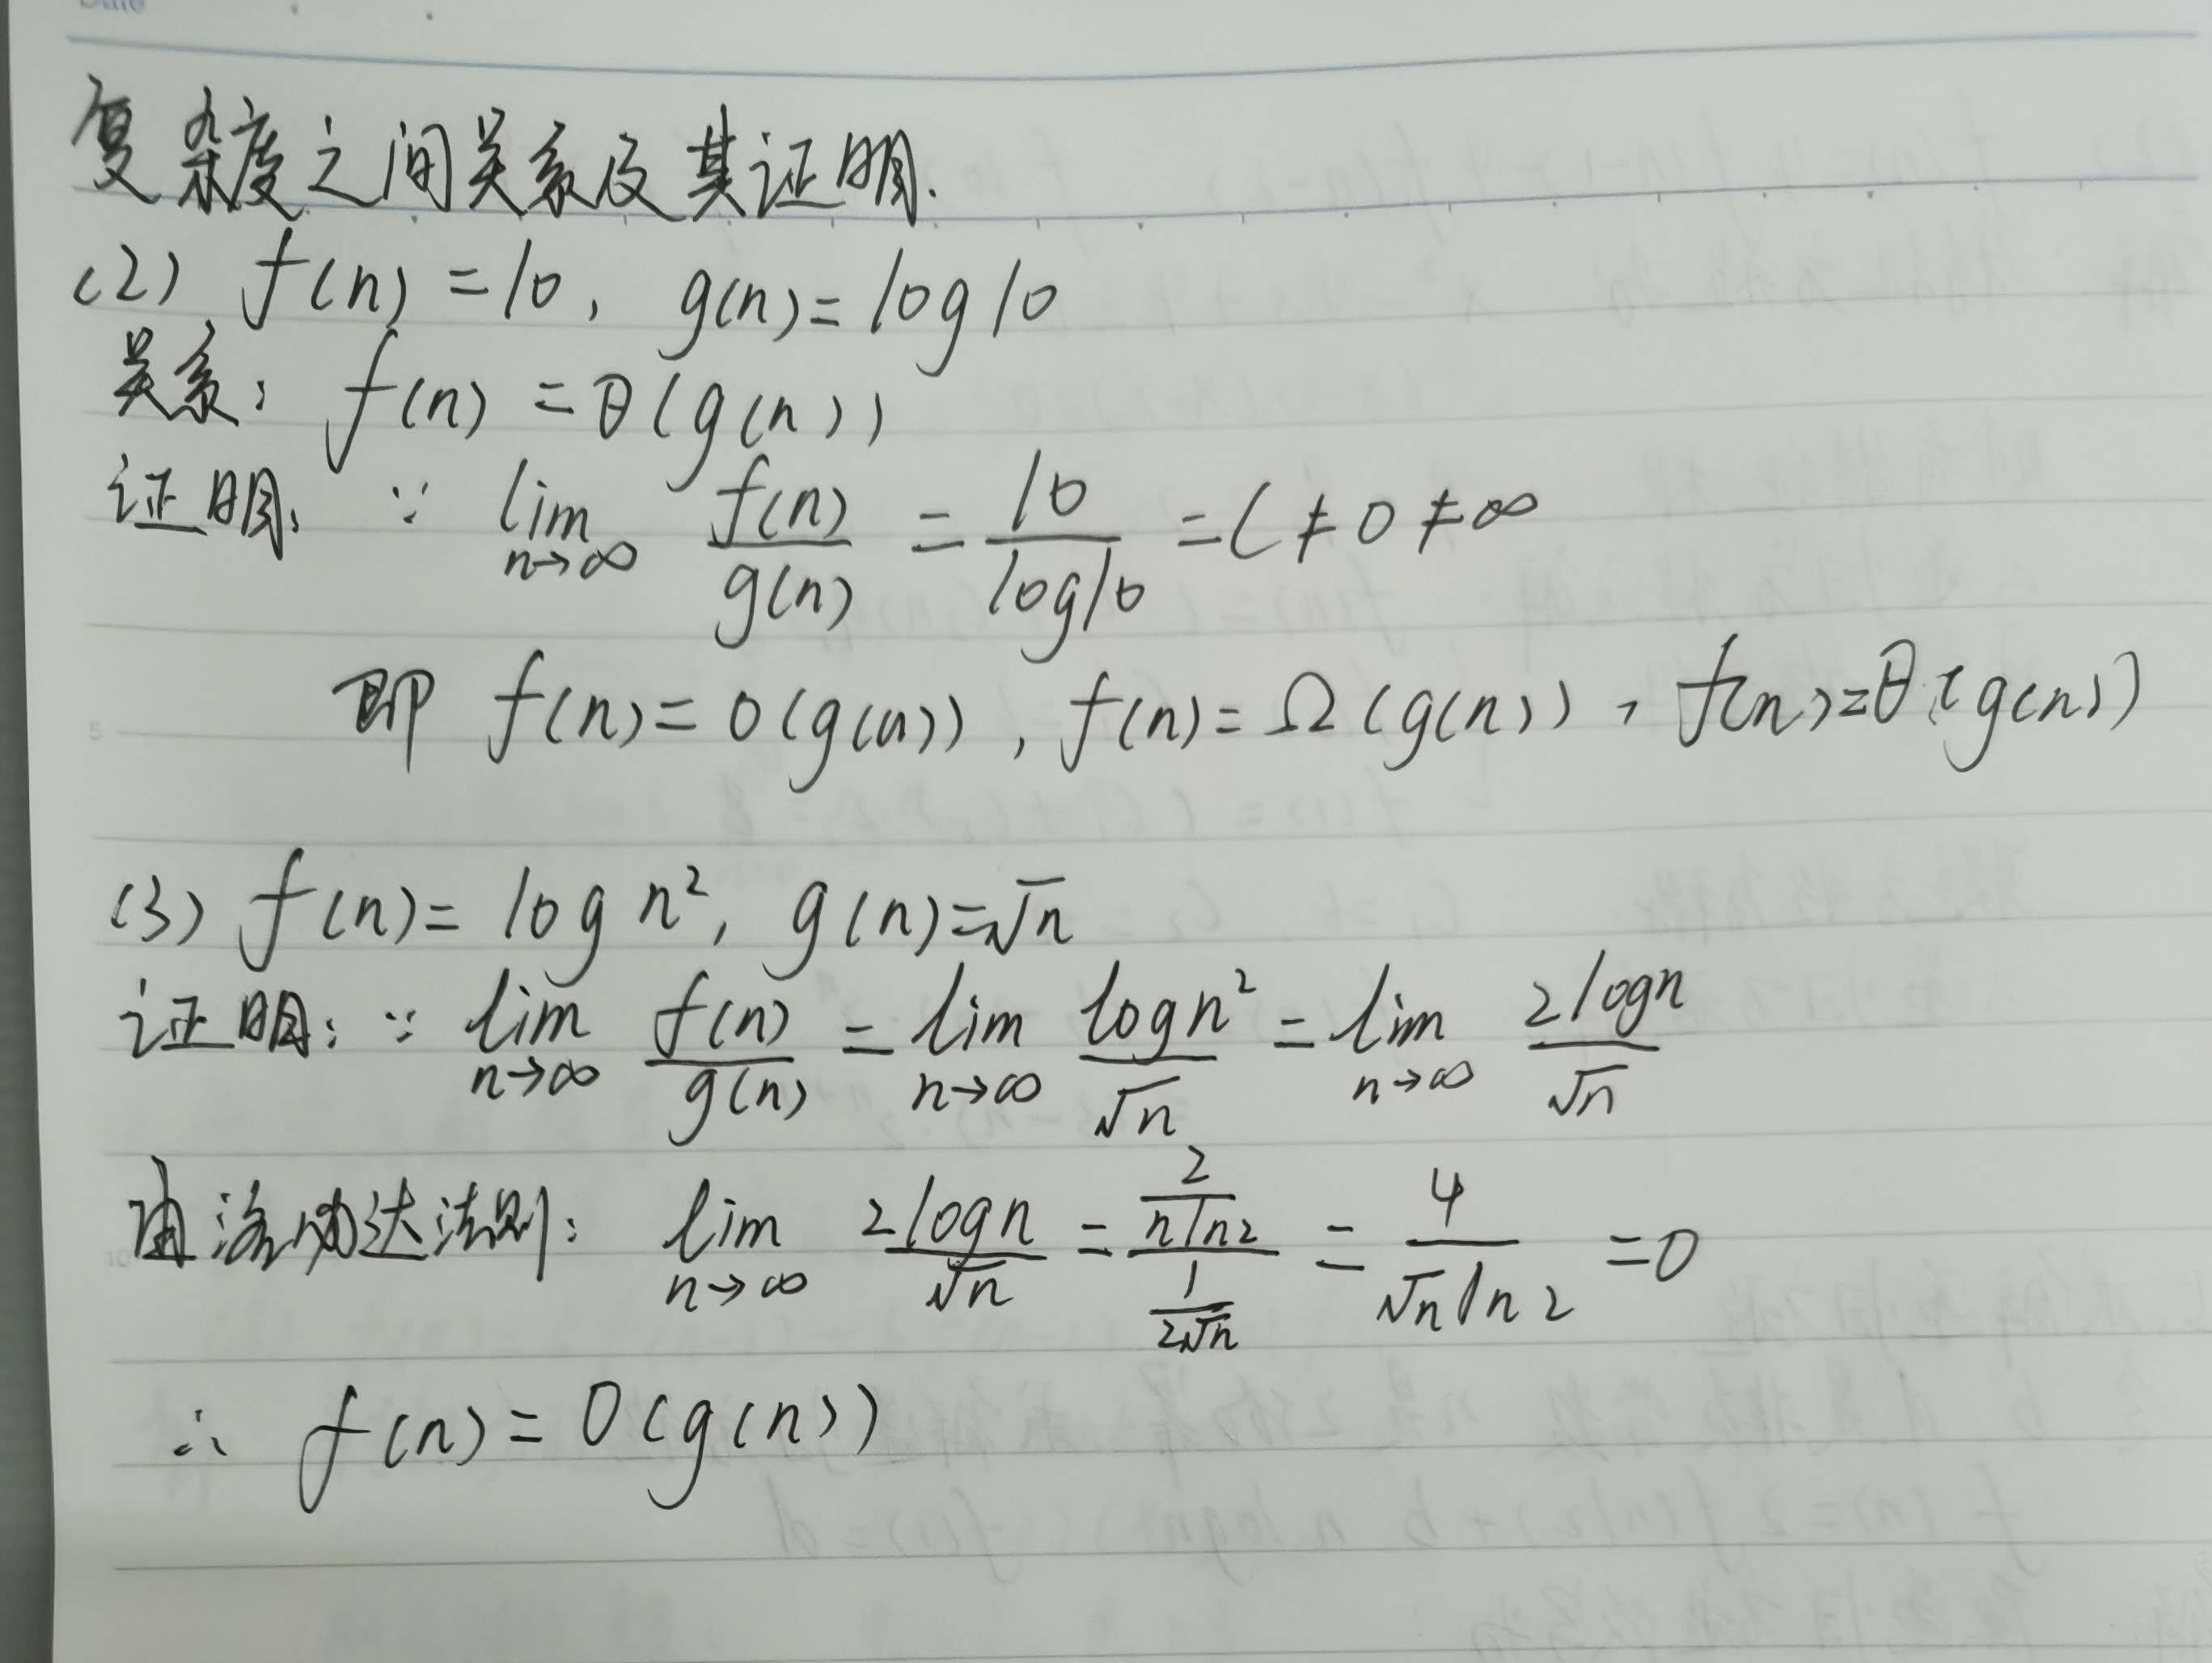 复杂度之间关系及其证明.
(2) f(n)=10, g(n)=log10
关系: f(n)=θ(g(n))
证明: ∵ lim n→∞ f(n)/g(n) = 10/log10 = C ≠ 0 ≠ ∞
即 f(n)=O(g(n)), f(n)=Ω(g(n)), f(n)=θ(g(n))
(3) f(n)=log n², g(n)=√n
证明: ∵ lim n→∞ f(n)/g(n) = lim n→∞ logn²/√n = lim n→∞ 2logn/√n
由洛必达法则: lim n→∞ 2logn/√n = (2/(nln2))/(1/(2√n)) = 4/(√n ln2) = 0
∴ f(n)=O(g(n))